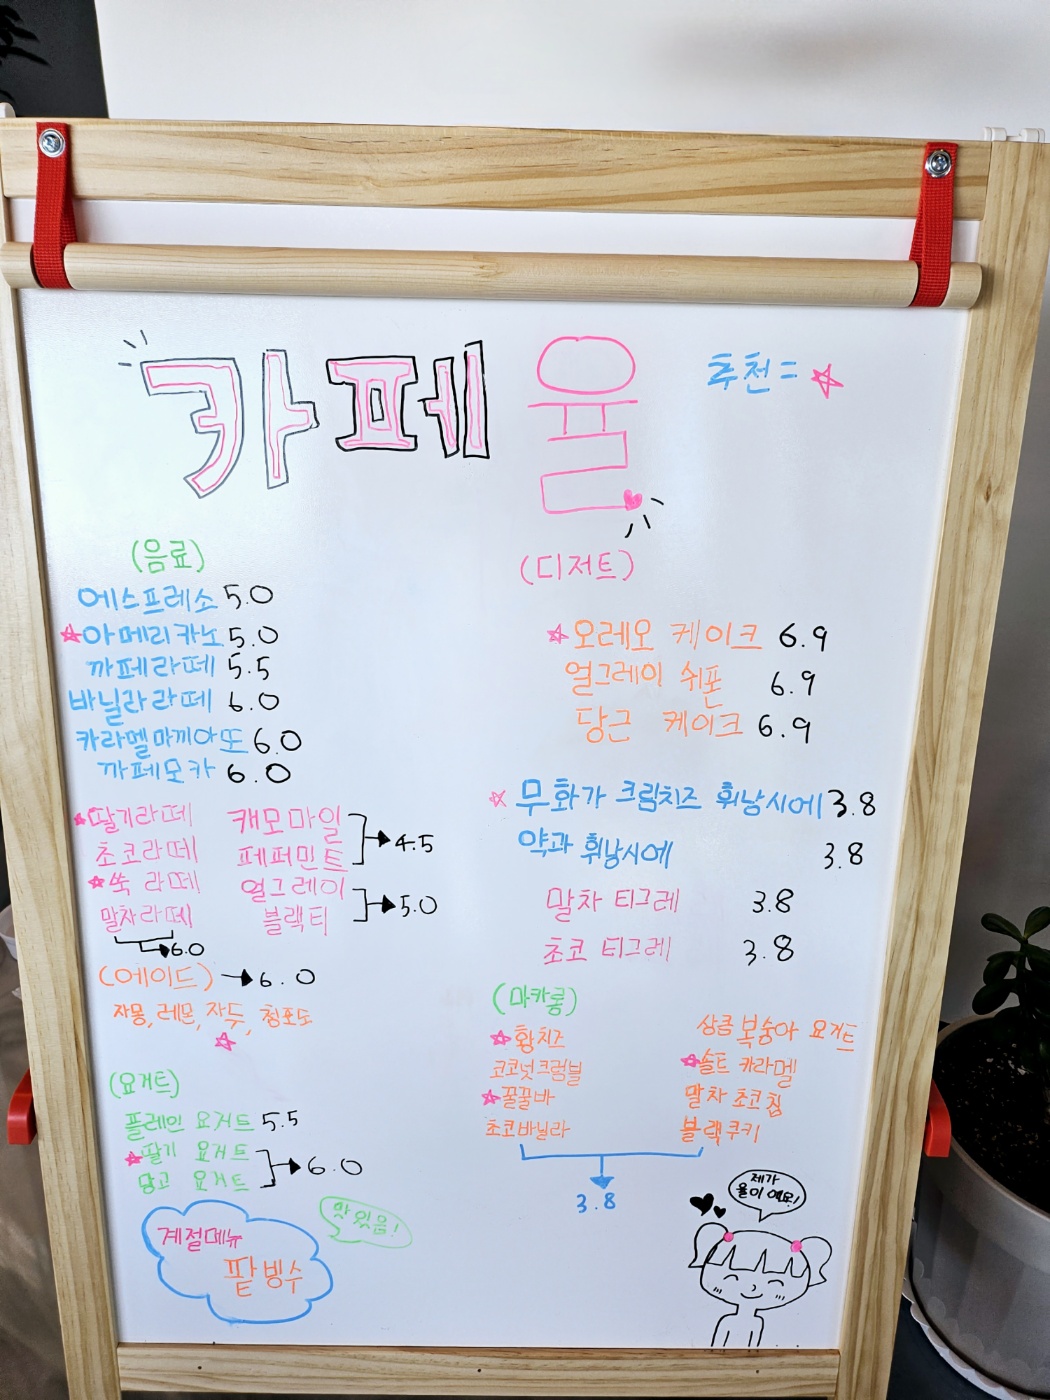 카페 율
추천 = ☆
(음료)
에스프레소 5.0
☆아메리카노 5.0
까페라떼 5.5
바닐라라떼 6.0
카라멜마끼아또 6.0
까페모카 6.0
☆딸기라떼
초코라떼
☆쑥 라떼
말차라떼
6.0
캐모마일
페퍼민트
4.5
얼그레이
블랙티
5.0
(에이드) → 6.0
자몽, 레몬, 자두, 청포도
☆
(요거트)
플레인 요거트 5.5
☆딸기 요거트
망고 요거트
6.0
계절메뉴
팥빙수
맛있음!
(디저트)
☆오레오 케이크 6.9
얼그레이 쉬폰 6.9
당근 케이크 6.9
☆무화가 크림치즈 휘낭시에 3.8
약과 휘낭시에 3.8
말차 티그레 3.8
초코 티그레 3.8
(마카롱)
☆황치즈
코코넛크럼블
☆꿀꿀바
초코바닐라
상큼 복숭아 요거트
☆솔트 카라멜
말차 초코칩
블랙쿠키
3.8
제가
율이에요!